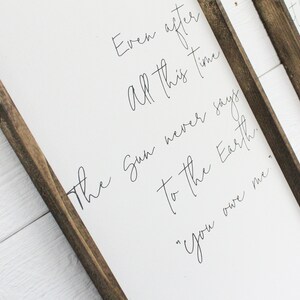 Even after
All this time
The Sun never says
to the Earth,
"you owe me"